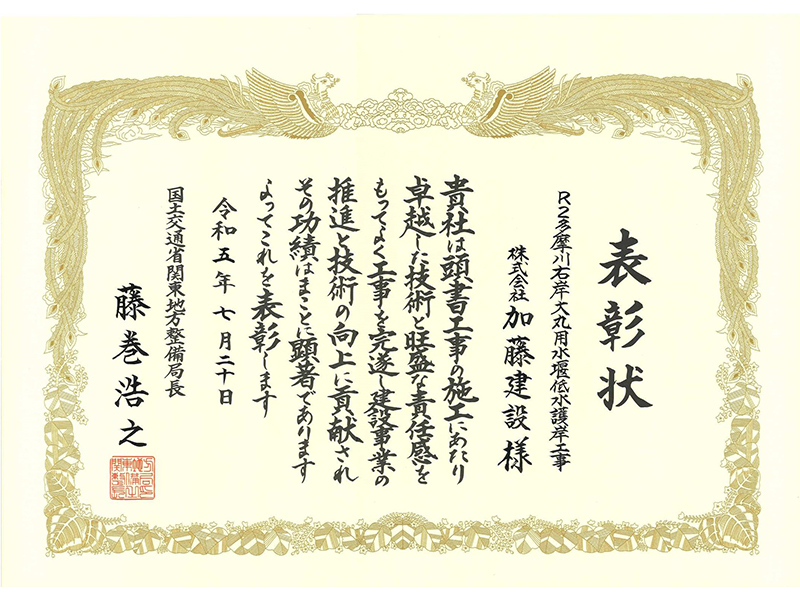 表彰状
R2多摩川右岸大丸用水堰低水護岸工事
株式会社 加藤建設 様
貴社は頭書工事の施工にあたり
卓越した技術と旺盛な責任感を
もってよく工事を完遂し建設事業の
推進と技術の向上に貢献され
その功績はまことに顕著であります
よってこれを表彰します
令和五年七月二十日
国土交通省関東地方整備局長
藤巻浩之